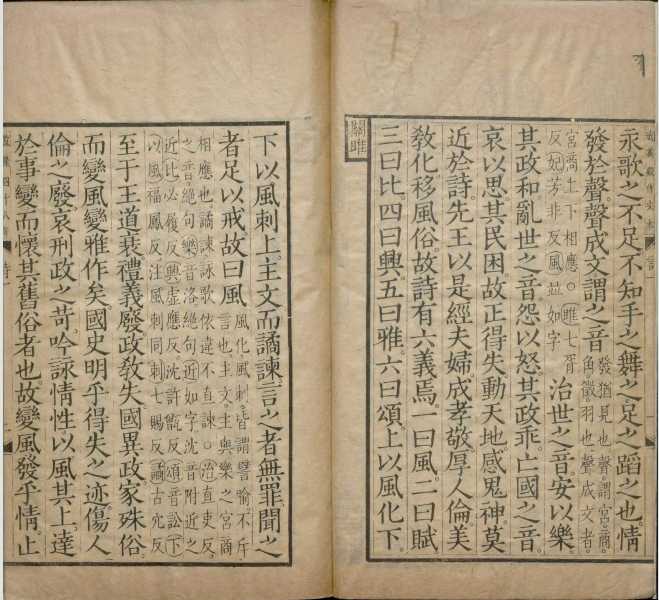 永歌之不足不知手之舞之足之蹈之也情
發於聲聲成文謂之音
發猶見也聲謂宮商
角徵羽也聲成文者
宮商上下相應○雎七胥
反妃芳非反風並如字
治世之音安以樂
其政和亂世之音怨以怒其政乖亡國之音
哀以思其民困故正得失動天地感鬼神莫
近於詩先王以是經夫婦成孝敬厚人倫美
教化移風俗故詩有六義焉一曰風二曰賦
三曰比四曰興五曰雅六曰頌上以風化下
關雎
下以風刺上主文而譎諫言之者無罪聞之
者足以戒故曰風
風化風刺皆謂譬喻不斥
言也主文主與樂之宮商
相應也譎諫詠歌依違不直諫○治直吏反
之音絕句樂音洛絕句近如字沈音附近之
近比必履反興虛應反沈許甑反頌音訟下
以風福鳳反注風刺同刺七賜反譎古穴反
至于王道衰禮義廢政教失國異政家殊俗
而變風變雅作矣國史明乎得失之迹傷人
倫之廢哀刑政之苛吟詠情性以風其上達
於事變而懷其舊俗者也故變風發乎情止